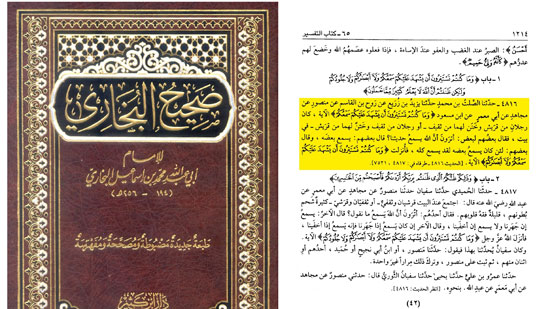 صحيح البخاري
للإمام
أبي عبد الله محمد بن إسماعيل البخاري
(١٩٤ - ٢٥٦ هـ)
طبعة جديدة مضبوطة ومصححة ومفهرسة
دار ابن كثير
١٢١٤
٦٥ - كتاب التفسير
أَحْسَنُ﴾: الصبرُ عند الغضب والعفو عندَ الإساءة، فإذا فعلوه عصَمهُم اللهُ وخَضعَ لهم
عدوُّهم ﴿كَأَنَّهُ وَلِيٌّ حَمِيمٌ﴾.
١ - باب ﴿وَمَا كُنتُمْ تَسْتَتِرُونَ أَن يَشْهَدَ عَلَيْكُمْ سَمْعُكُمْ وَلَا أَبْصَارُكُمْ وَلَا جُلُودُكُمْ
وَلَٰكِن ظَنَنتُمْ أَنَّ اللَّهَ لَا يَعْلَمُ كَثِيرًا مِّمَّا تَعْمَلُونَ﴾
٤٨١٦ - حدَّثنا الصَّلْتُ بن محمدٍ حدَّثنا يزيدُ بن زُرَيع عن رَوح بن القاسم عن منصورٍ عن
مجاهدٍ عن أبي معمرٍ عن ابن مسعود ﴿وَمَا كُنتُمْ تَسْتَتِرُونَ أَن يَشْهَدَ عَلَيْكُمْ سَمْعُكُمْ﴾ الآية، كان
رجلان من قريشٍ وخَتَنٌ لهما من ثَقيف - أو رجلان من ثقيف وخَتَنٌ لهما من قريش - في
بيت، فقال بعضُهم لبعض: أتُرَونَ أنَّ اللهَ يسمعُ حديثَنا؟ قال بعضُهم: يسمعُ بعضَه، وقال
بعضُهم: لئن كان يسمعُ بعضَه لقد يسمعُ كله، فأُنزلت ﴿وَمَا كُنتُمْ تَسْتَتِرُونَ أَن يَشْهَدَ عَلَيْكُمْ
سَمْعُكُمْ وَلَا أَبْصَارُكُمْ﴾ الآية. [الحديث ٤٨١٦ - طرفاه في: ٤٨١٧، ٧٥٢١].
٢ - باب ﴿وَذَٰلِكُمْ ظَنُّكُمُ الَّذِي ظَنَنتُم بِرَبِّكُمْ أَرْدَاكُمْ فَأَصْبَحْتُم مِّنَ الْخَاسِرِينَ﴾
٤٨١٧ - حدَّثنا الحُميدي حدَّثنا سفيانُ حدَّثنا منصورٌ عن مجاهد عن أبي معمر عن
عبدِ الله رضيَ الله عنه قال: اجتمعَ عندَ البيت قُرشيان وثَقَفيّ - أو ثقفيّان وقُرَشيّ - كثيرةٌ شَحم
بُطونهم، قليلةٌ فقهُ قلوبهم. فقال أحدُهم: أتُرَونَ أنَّ اللهَ يَسمَعُ ما نقول؟ قال الآخر: يسمَعُ
إن جَهَرْنا ولا يسمع إن أخفَينا، وقال الآخر إن كان يَسمعُ إذا جَهَرنا فإنه يسمعُ إذا أخفَينا.
فأنزلَ اللهُ عزَّ وجل ﴿وَمَا كُنتُمْ تَسْتَتِرُونَ أَن يَشْهَدَ عَلَيْكُمْ سَمْعُكُمْ وَلَا أَبْصَارُكُمْ وَلَا جُلُودُكُمْ﴾ الآية.
وكان سفيانُ يُحدِّثُنا بهذا فيقول: حدَّثنا منصور، أو ابنُ أبي نجيح أو حُميد، أحدُهم أو
اثنان منهم، ثم ثبت على منصور، وتركَ ذلك مِراراً غيرَ واحدة.
حدَّثنا عمرُو بن عليّ حدَّثنا يحيى حدَّثنا سفيانُ الثَّوريُّ قال: حدَّثني منصورٌ عن مجاهد
عن أبي معمرٍ عن عبدِ الله. بنحوِه. [انظر الحديث: ٤٨١٦].
(٤٢)